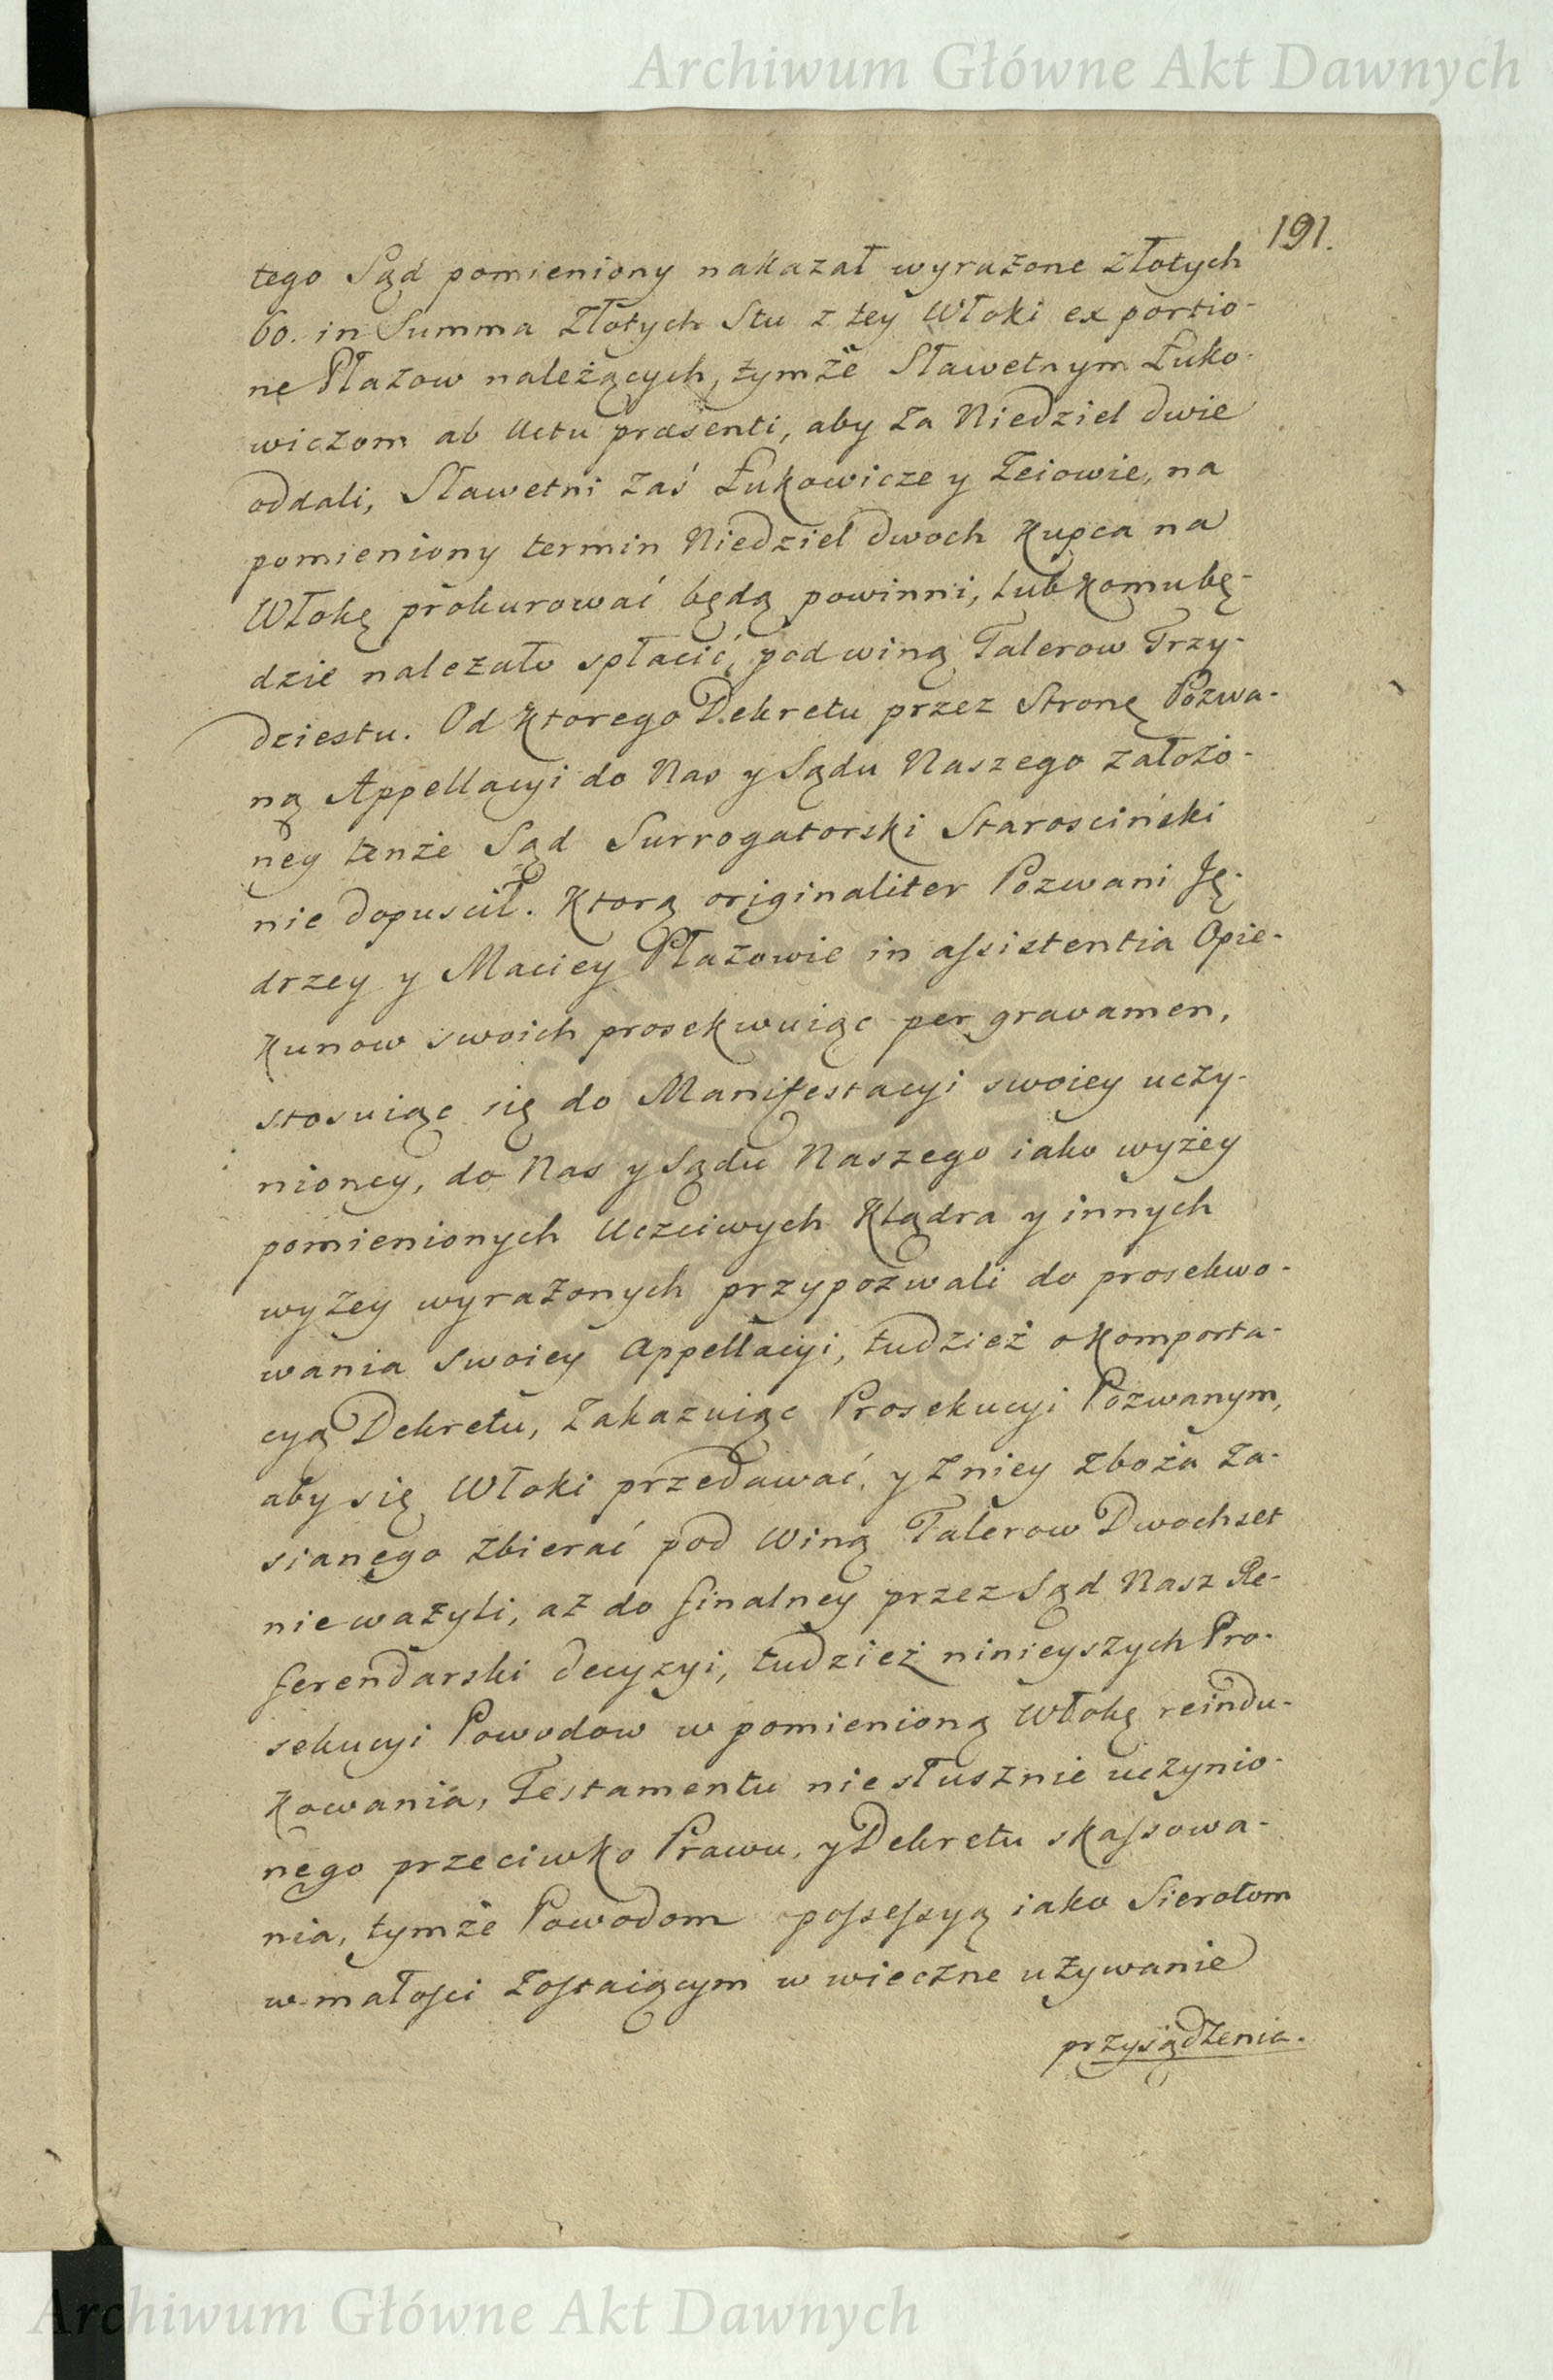 Archiwum Główne Akt Dawnych
191.
tego Sąd pomieniony nakazał wyrażone złotych
60. in Summa Złotych Stu z tey Włoki ex portio-
ne Płazow należących, tymże Sławetnym Łuko-
wiczom ab Actu præsenti, aby za Niedziel dwie
oddali, Sławetni zaś Łukowicze y Zeiowie, na
pomieniony termin Niedziel dwoch Kupca na
Włokę prokurować będą powinni, lub komu bę-
dzie należało spłacić, pod winą Talerow Trzy-
dziestu. Od Ktorego Dekretu przez Stronę Pozwa-
ną Appellacyi do Nas y Sądu Naszego założo-
ney tenże Sąd Surrogatorski Starosciński
nie dopuscił. Ktorą originaliter Pozwani Ję-
drzey y Maciey Płazowie in assistentia Opie-
kunow swoich prosekwuiąc per gravamen,
stosuiąc się do Manifestacyi swoiey uczy-
nioney, do Nas y Sądu Naszego iako wyżey
pomienionych Uczciwych Kłądra y innych
wyżey wyrażonych przypozwali do prosekwo-
wania swoiey Appellacyi, tudzież o Komporta-
cyą Dekretu, zakazuiąc Prosekucyi Pozwanym,
aby się Włoki przedawać, y z niey zboża za-
sianego zbierać pod winą Talerow Dwochset
nie ważyli, aż do finalney przez Sąd Nasz Re-
ferendarski decyzyi, tudzież ninieyszych Pro-
sekucyi Powodow w pomienioną Włokę reindu-
kowania, Testamentu niesłusznie uczynio-
nego przeciwko Prawu, y Dekretu skassowa-
nia, tymże Powodom possessyą iako Sierotom
w małosci zostaiącym w wieczne używanie
przysądzenia.
Archiwum Główne Akt Dawnych